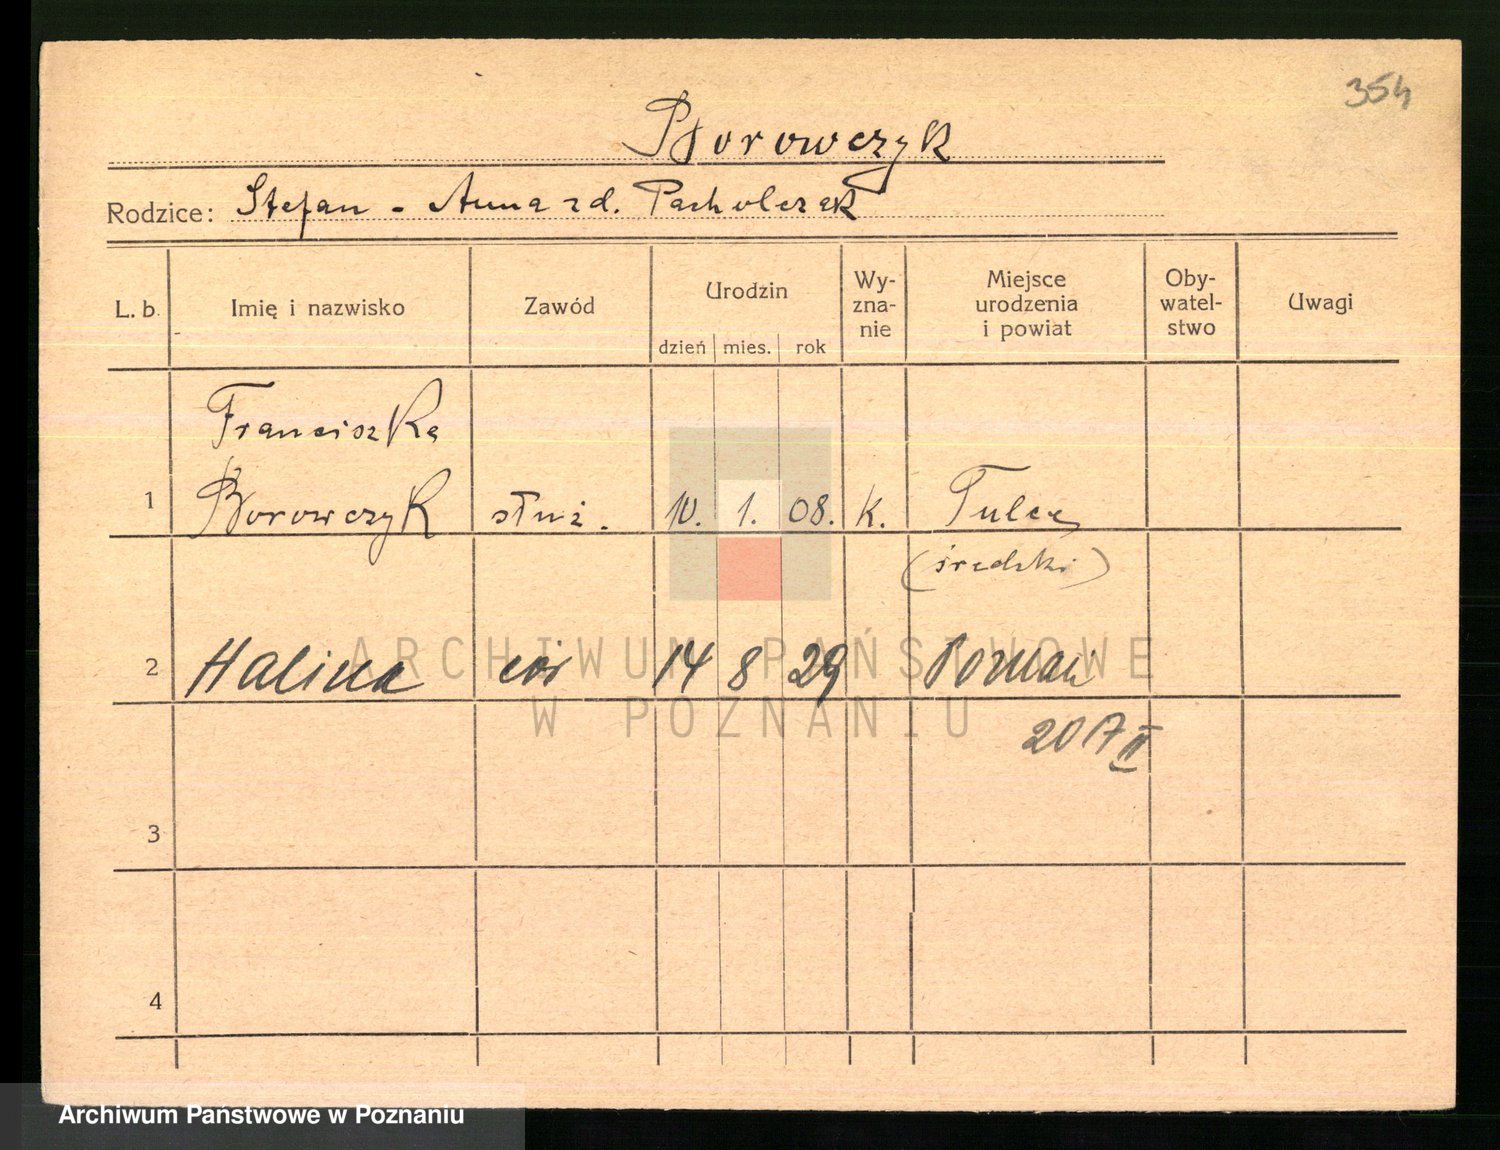 354
Borowczyk
Rodzice: Stefan - Anna zd. Pacholczak
L. b. Imię i nazwisko Zawód Urodzin dzień mies. rok Wy-zna-nie Miejsce urodzenia i powiat Oby-watel-stwo Uwagi
Franciszka
1 Borowczyk służ. 10. 1. 08. k. Tulce
(średzki)
2 Halina cór 14 8 29 Poznań
207 II
3
4
ARCHIWUM PAŃSTWOWE
W POZNANIU
Archiwum Państwowe w Poznaniu